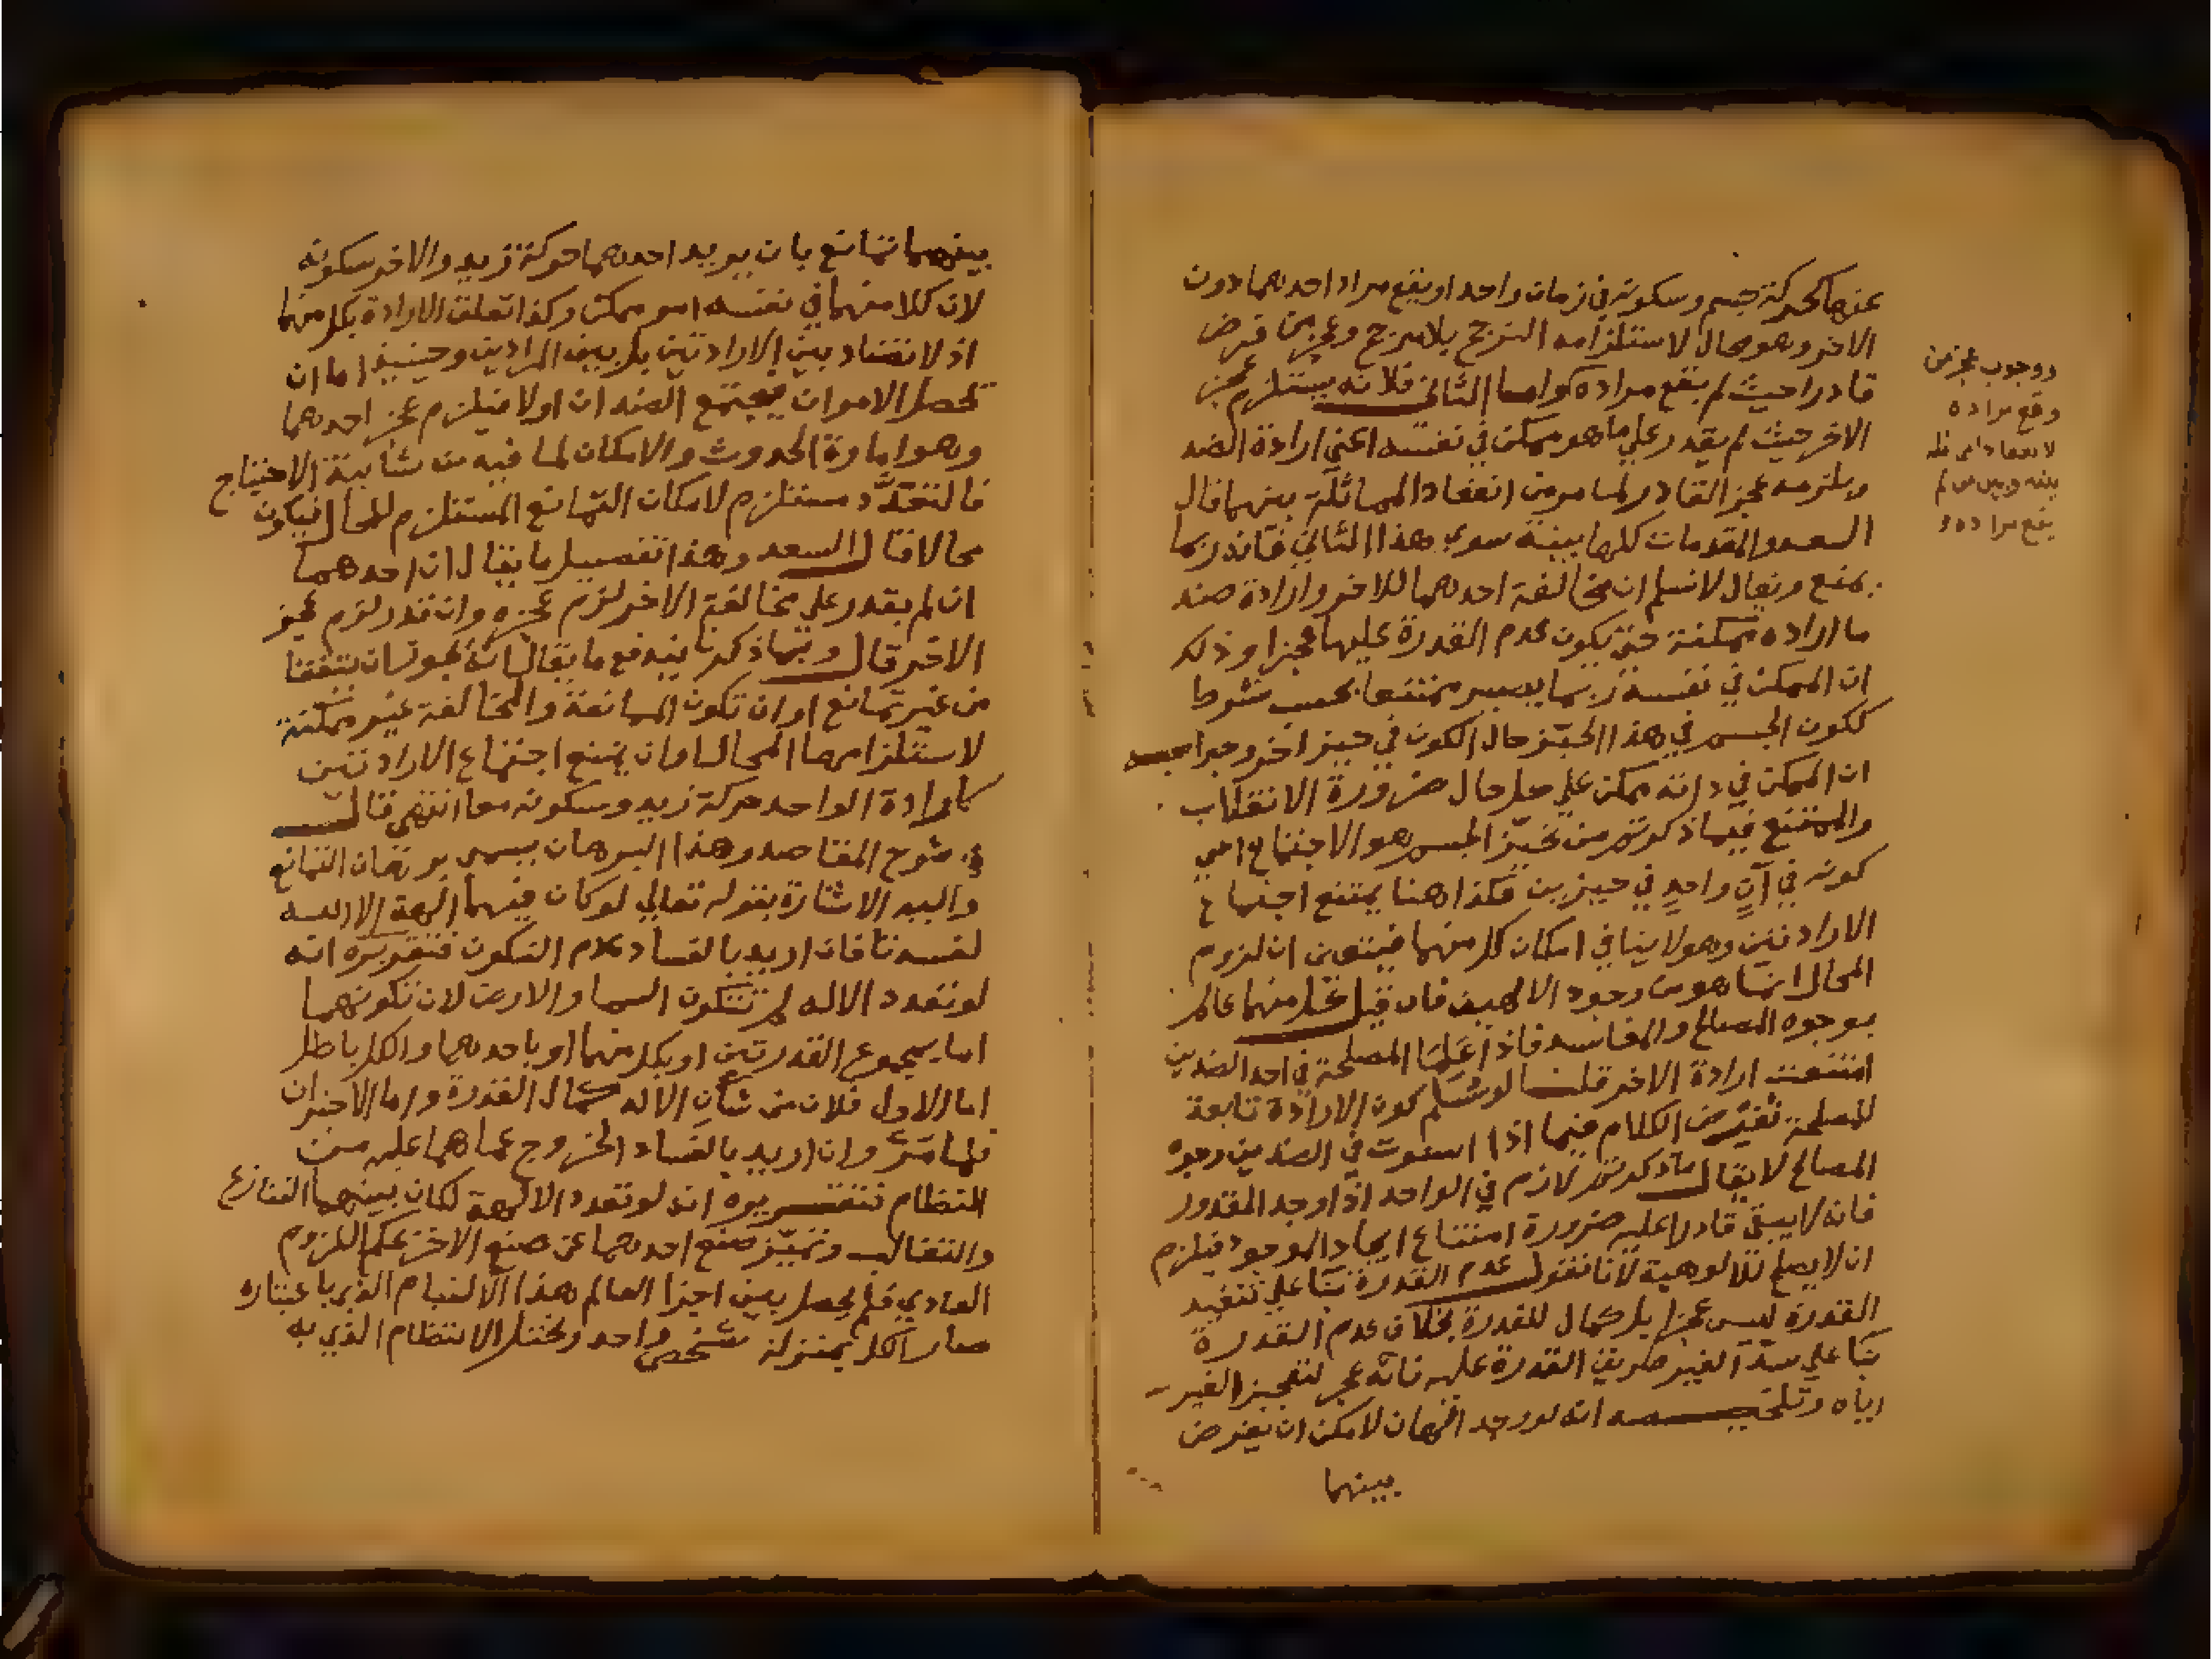 عنهما كحركة جسم وسكونه في زمان واحد او يقع مراد احدهما دون
الاخر وهو محال لاستلزامه الترجح بلا مرجح وعجز من فرض
قادرا حيث لم يقع مراده واما الثاني فلانه يستلزم عجز
الاخر حيث لم يقدر علي ما هو ممكن في نفسه اعني ارادة الضد
ويلزمه عجز القادر لما مر من انعقاد المماثلة بينهما قال
السعد والمقدمات كلها بينة سوي هذا الثاني فانه ربما
يمنع ويقال لا نسلم ان مخالفة احدهما للاخر وارادة ضد
ما اراده ممكنة حتي يكون عدم القدرة عليها عجزا وذلك
ان الممكن في نفسه ربما يصير ممتنعا بحسب شرط
ككون الجسم في هذا الحيّز حال الكون في حيز اخر وجوابه
ان الممكن في ذاته ممكن علي كل حال ضرورة الانقلاب
والممتنع فيما ذكرتم من تحيّز الجسم هو الاجتماع اعني
كونه في آنٍ واحدٍ في حيزين فكذا هنا يمتنع اجتماع
الارادتين وهو لا ينافي امكان كل منهما فيتعين ان لزوم
المحال انما هو من وجود الالهين فان قيل كل منهما عالم
بوجوه المصالح والمفاسد فاذا علما المصلحة في احد الضدين
امتنعت ارادة الاخر قلنا لو سلم كون الارادة تابعة
للمصلحة نفرض الكلام فيما اذا استوت في الضدين وجوه
المصالح لا يقال ما ذكرتم لازم في الواحد اذا اوجد المقدور
فانه لا يبقي قادرا عليه ضرورة امتناع ايجاد الموجود فيلزم
ان لا يصلح للالوهية لانا نقول عدم القدرة بنا علي تنفيذ
القدرة ليس عجزا بل كمال للقدرة بخلاف عدم القدرة
بنا علي سدّ الغير طريق القدرة عليه فانه عجز لتعجيز الغير
اياه وتلخيصه انه لو وجد الهان لامكن ان يفرض
بينهما
ووجوب عجز من
وقع مراده
لانعقاد المماثلة
بينه وبين من لم
يقع مراده
بينهما تمانع بان يريد احدهما حركة زيد والاخر سكونه
لان كلا منهما في نفسه امر ممكن وكذا تعلق الارادة بكل منهما
اذ لا تضاد بين الارادتين بل بين المرادين وحينيذ اما ان
تحصل الامران فيجتمع الضدان اولا فيلزم عجز احدهما
وهو امارة الحدوث والامكان لما فيه من شايبة الاحتياج
فالتعدّد مستلزم لامكان التمانع المستلزم للمحال فيكون
محالا قال السعد وهذا تفصيل ما يقال ان احدهما
ان لم يقدر علي مخالفة الاخر لزم عجزه وان قدر لزم عجز
الاخر قال وبما ذكرنا يندفع ما يقال انه يجوز ان يتفقا
من غير تمانع او ان تكون الممانعة والمخالفة غير ممكنة
لاستلزامها المحال او ان يمتنع اجتماع الارادتين
كارادة الواحد حركة زيد وسكونه معا انتهي قال
في شرح المقاصد وهذا البرهان يسمي برهان التمانع
واليه الاشارة بقوله تعالي لو كان فيهما الهة الا الله
لفسدتا فان اريد بالفساد عدم التكون فتقريره انه
لو تعدد الاله لم تتكون السما والارض لان تكونهما
اما بمجموع القدرتين او بكل منهما او باحدهما والكل باطل
اما الاول فلان من شان الاله كمال القدرة واما الاخيران
فلما مرّ وان اريد بالفساد الخروج عما هما عليه من
النظام فتقريره انه لو تعدد الالهة لكان بينهما التنازع
والتغالب وتميّز صنع احدهما عن صنع الاخر بحكم اللزوم
العادي فلم يحصل بين اجزا العالم هذا الالتيام الذي باعتباره
صار الكل بمنزلة شخص واحد ويختل الانتظام الذي به